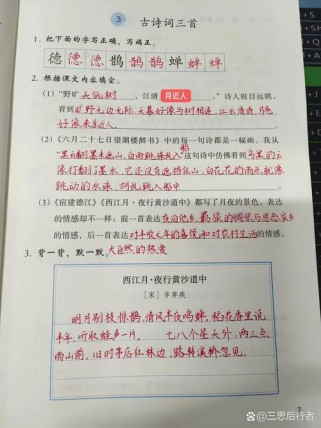 3 古诗词三首
1. 把下面的字写正确，写端正。
德 德 德 鹊 鹊 鹊 蝉 蝉 蝉
2. 根据课文内容填空。
(1)“野旷天低树，江清月近人。”诗人极目远眺，
看到旷野无边无际，天幕好像与树相连，江水清清，月亮
好像来亲近人。
(2)《六月二十七日望湖楼醉书》中的每一句诗都是一幅画。我从
“黑云翻墨未遮山，白雨跳珠乱入船”这句诗中仿佛看到乌黑的云
滚打翻了墨水，它还没有遮挡住山，白花花的雨点就像
跳动的水珠，胡乱跳入船中
(3)《宿建德江》《西江月·夜行黄沙道中》都写了月夜的景色，表达
的情感却不一样：前一首表达夜泊他乡、羁旅的惆怅与思念家乡
的情感，后一首表达对丰收之年的喜悦和对农村生活的情感。
大自然的热爱
3. 背一背，默一默。
西江月·夜行黄沙道中
[宋] 辛弃疾
明月别枝惊鹊，清风半夜鸣蝉，稻花香里说
丰年，听取蛙声一片。 七八个星天外，两三点
雨山前，旧时茅店社林边，路转溪桥忽见。
7
@三思后行者